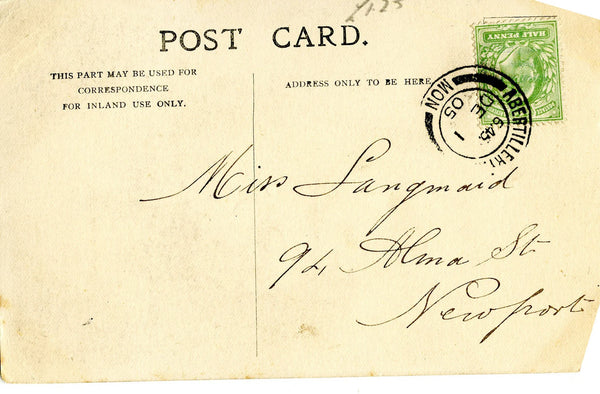 £1.25
POST CARD.
THIS PART MAY BE USED FOR
CORRESPONDENCE
FOR INLAND USE ONLY.
ADDRESS ONLY TO BE HERE
HALF PENNY
ABERTILLERY
645
DE 1
05
MON
Miss Langmaid
94 Alma St
Newport